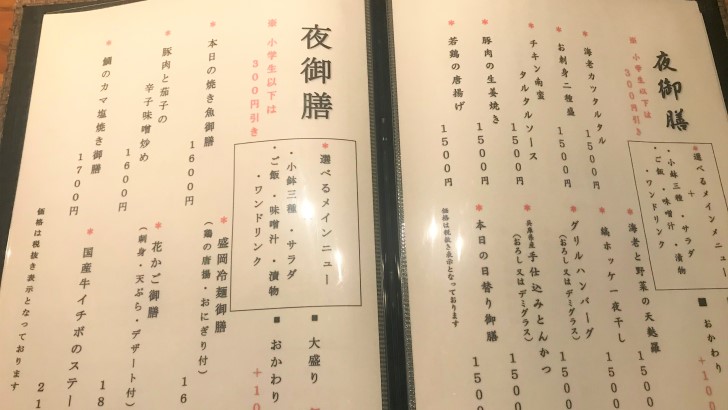 夜御膳
※ 小学生以下は
300円引き
選べるメインメニュー
+
・小鉢三種 ・サラダ
・ご飯 ・味噌汁 ・漬物
・ワンドリンク
■ おかわり
海老カツタルタル
1500円
お刺身二種盛
1500円
チキン南蛮
タルタルソース
1500円
豚肉の生姜焼き
1500円
若鶏の唐揚げ
1500円
海老と野菜の天麩羅
1500
鶏ホッケ一夜干し
1500
グリルハンバーグ
(おろし又はデミグラス)
1500
兵庫県産 手仕込みとんかつ
(おろし又はデミグラス)
1500
本日の日替り御膳
1500
価格は税抜き表示となっております
夜御膳
※ 小学生以下は
300円引き
選べるメインメニュー
・小鉢三種 ・サラダ
・ご飯 ・味噌汁 ・漬物
・ワンドリンク
■ 大盛り
■ おかわり
+10
本日の焼き魚御膳
1600円
豚肉と茄子の
辛子味噌炒め
1600円
鯛のカマ塩焼き御膳
1700円
盛岡冷麺御膳
(鶏の唐揚・おにぎり付)
16
花かご御膳
(刺身・天ぷら・デザート付)
18
国産牛イチボのステー
21
価格は税抜き表示となっております